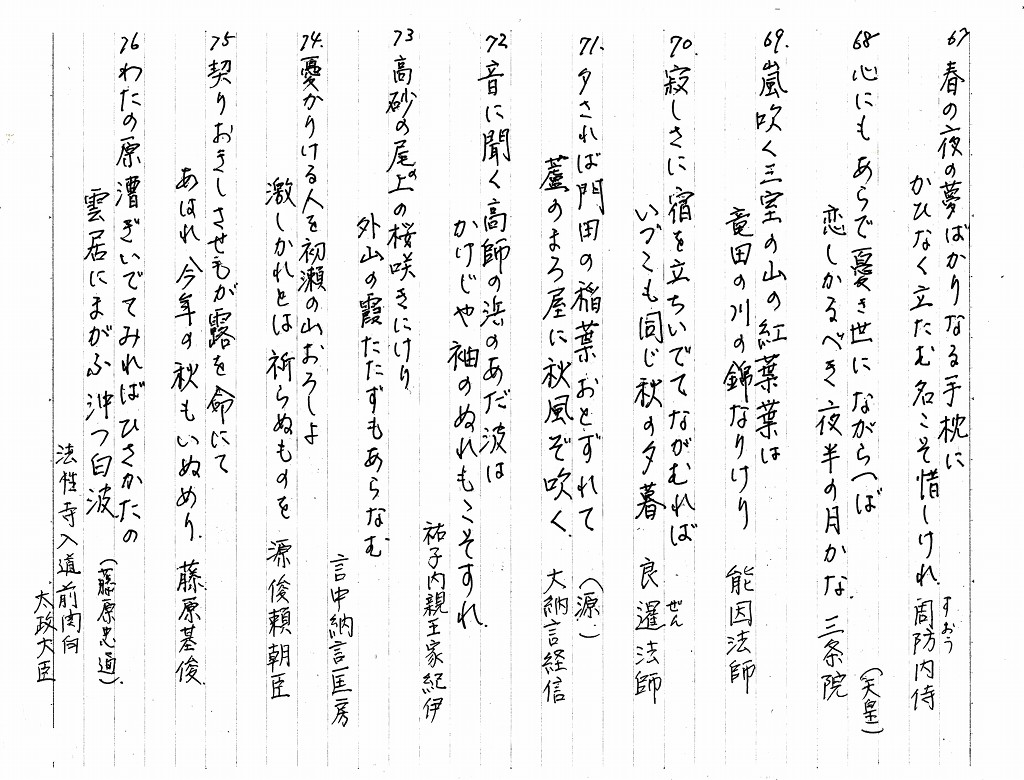 67 春の夜の夢ばかりなる手枕に
かひなく立たむ名こそ惜しけれ 周防内侍
すおう
68 心にもあらで憂き世にながらへば
恋しかるべき夜半の月かな 三条院
(天皇)
69. 嵐吹く三室の山の紅葉葉は
竜田の川の錦なりけり 能因法師
70. 寂しさに宿を立ちいでてながむれば
いづこも同じ秋の夕暮 良暹法師
ぜん
71. 夕されば門田の稲葉おとずれて
蘆のまろ屋に秋風ぞ吹く 大納言経信
(源)
72 音に聞く高師の浜のあだ波は
かけじや袖のぬれもこそすれ
祐子内親王家紀伊
73 高砂の尾の上の桜咲きにけり
外山の霞たたずもあらなむ
言中納言匡房
74. 憂かりける人を初瀬の山おろしよ
激しかれとは祈らぬものを 源俊頼朝臣
75 契りおきしさせもが露を命にて
あはれ今年の秋もいぬめり 藤原基俊
76 わたの原漕ぎいでてみればひさかたの
雲居にまがふ沖つ白波 (藤原忠通)
法性寺入道前関白
太政大臣